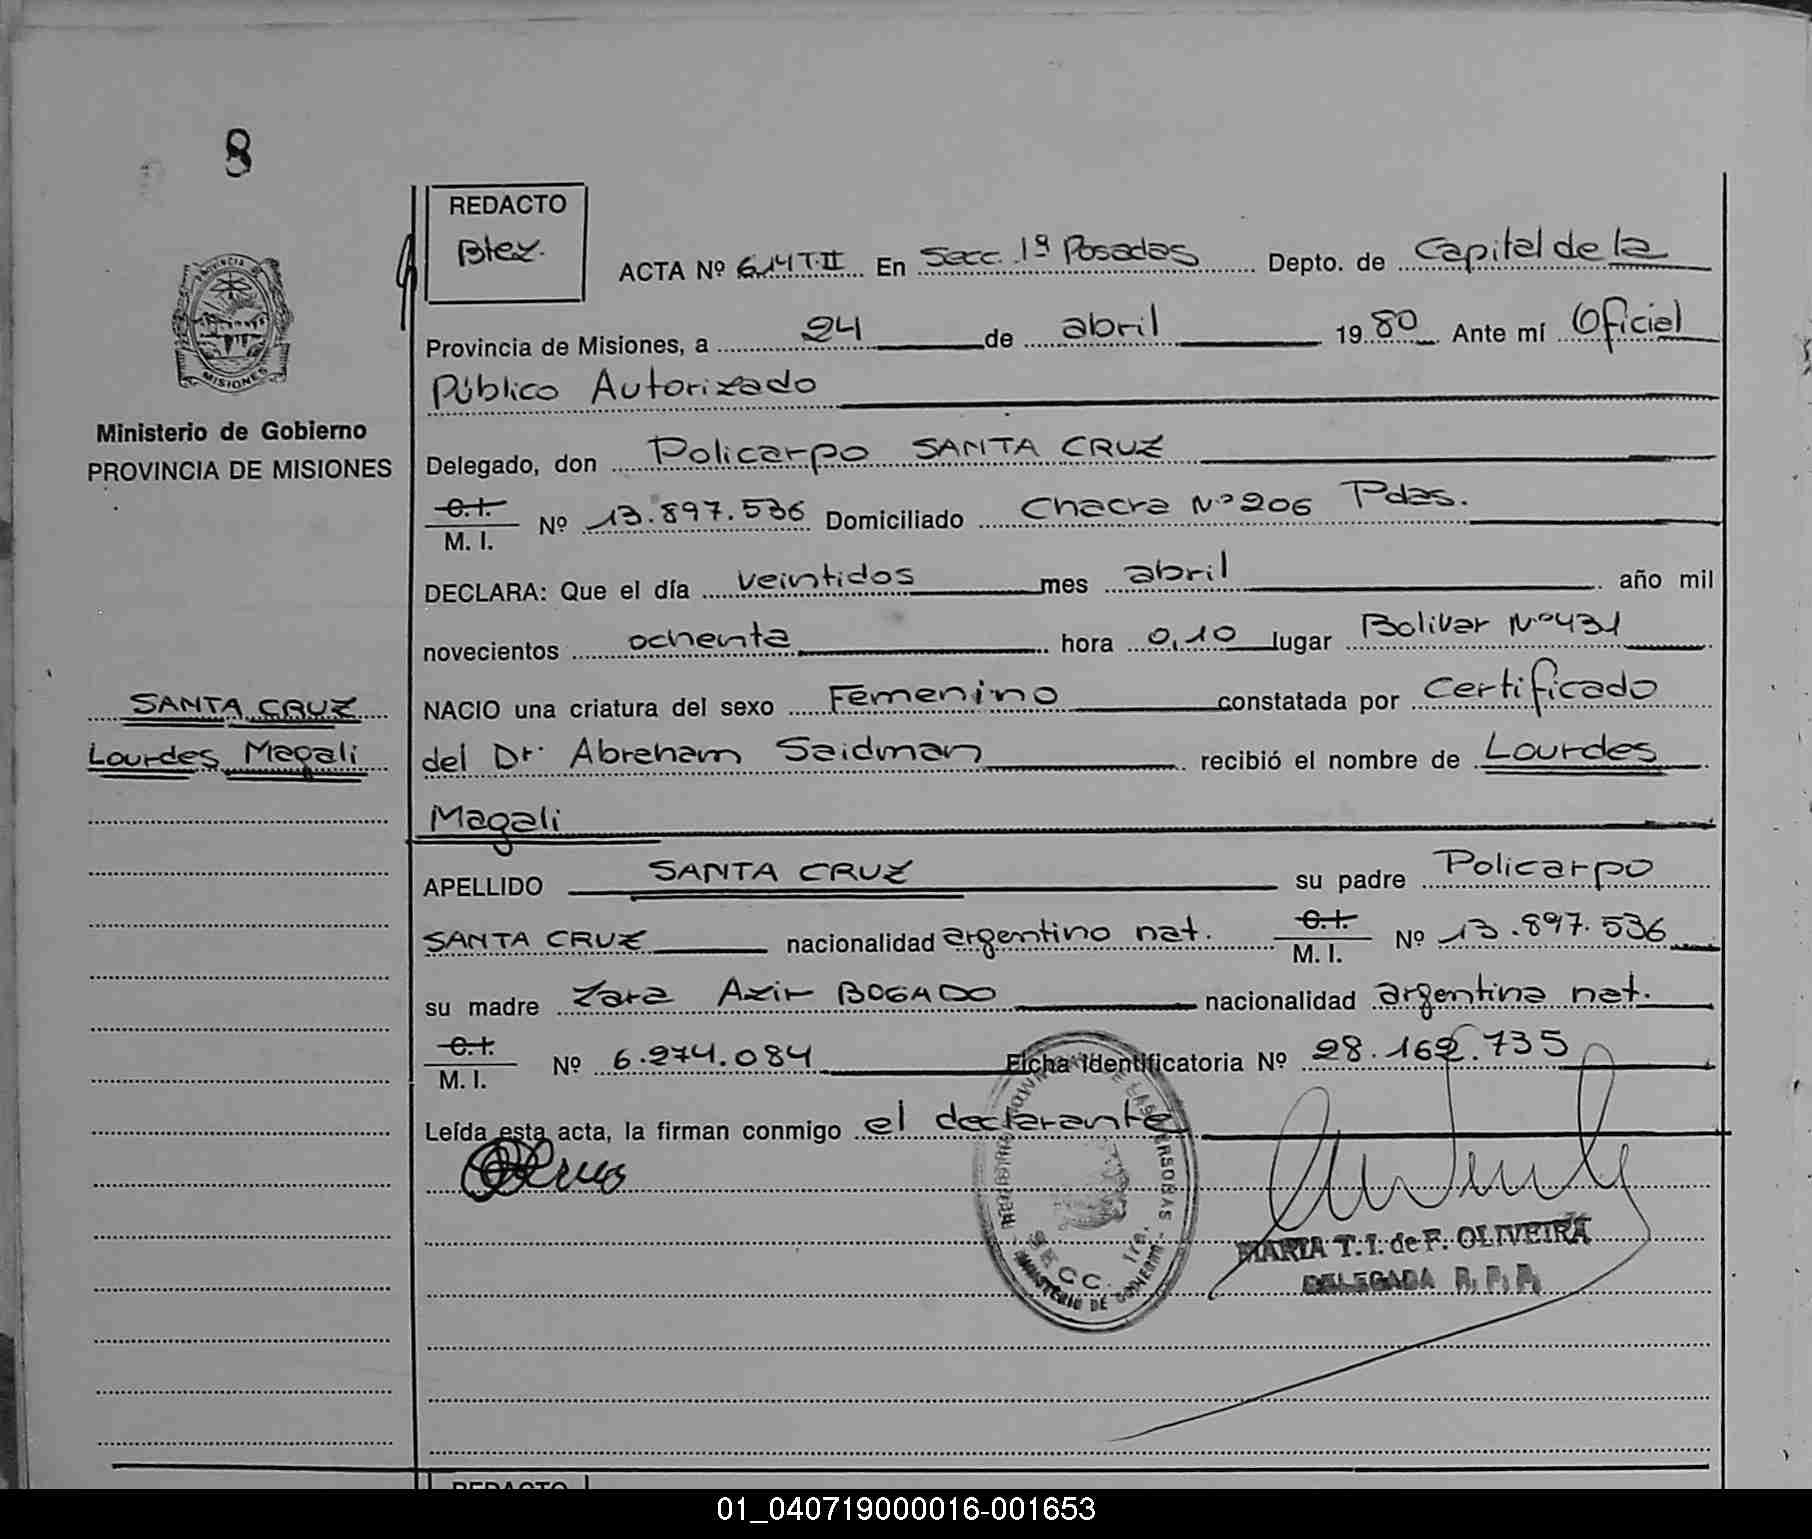 8
REDACTO
Btez.
ACTA Nº 614 T.II En Secc. 1ª Posadas Depto. de Capital de la
Provincia de Misiones, a 24 de abril 1980 Ante mí Oficial
Público Autorizado
MISIONES
Ministerio de Gobierno
PROVINCIA DE MISIONES
Delegado, don Policarpo SANTA CRUZ
C.I.
M. I. Nº 13.897.536 Domiciliado Chacra Nº 206 Pdas.
DECLARA: Que el día veintidos mes abril año mil
novecientos ochenta hora 0,10 lugar Bolivar Nº 431
SANTA CRUZ
Lourdes Magali
NACIO una criatura del sexo Femenino constatada por Certificado
del Dr. Abraham Saidman recibió el nombre de Lourdes
Magali
APELLIDO SANTA CRUZ su padre Policarpo
SANTA CRUZ nacionalidad argentino nat. C.I. M. I. Nº 13.897.536
su madre Zara Azir BOGADO nacionalidad argentina nat.
C.I.
M. I. Nº 6.274.084 Ficha Identificatoria Nº 28.162.735
Leída esta acta, la firman conmigo el declarante
SECC. 1ra.
MINISTERIO DE GOBIERNO
MARIA T. I. de F. OLIVEIRA
DELEGADA R. P. P.
REDACTO
01_040719000016-001653